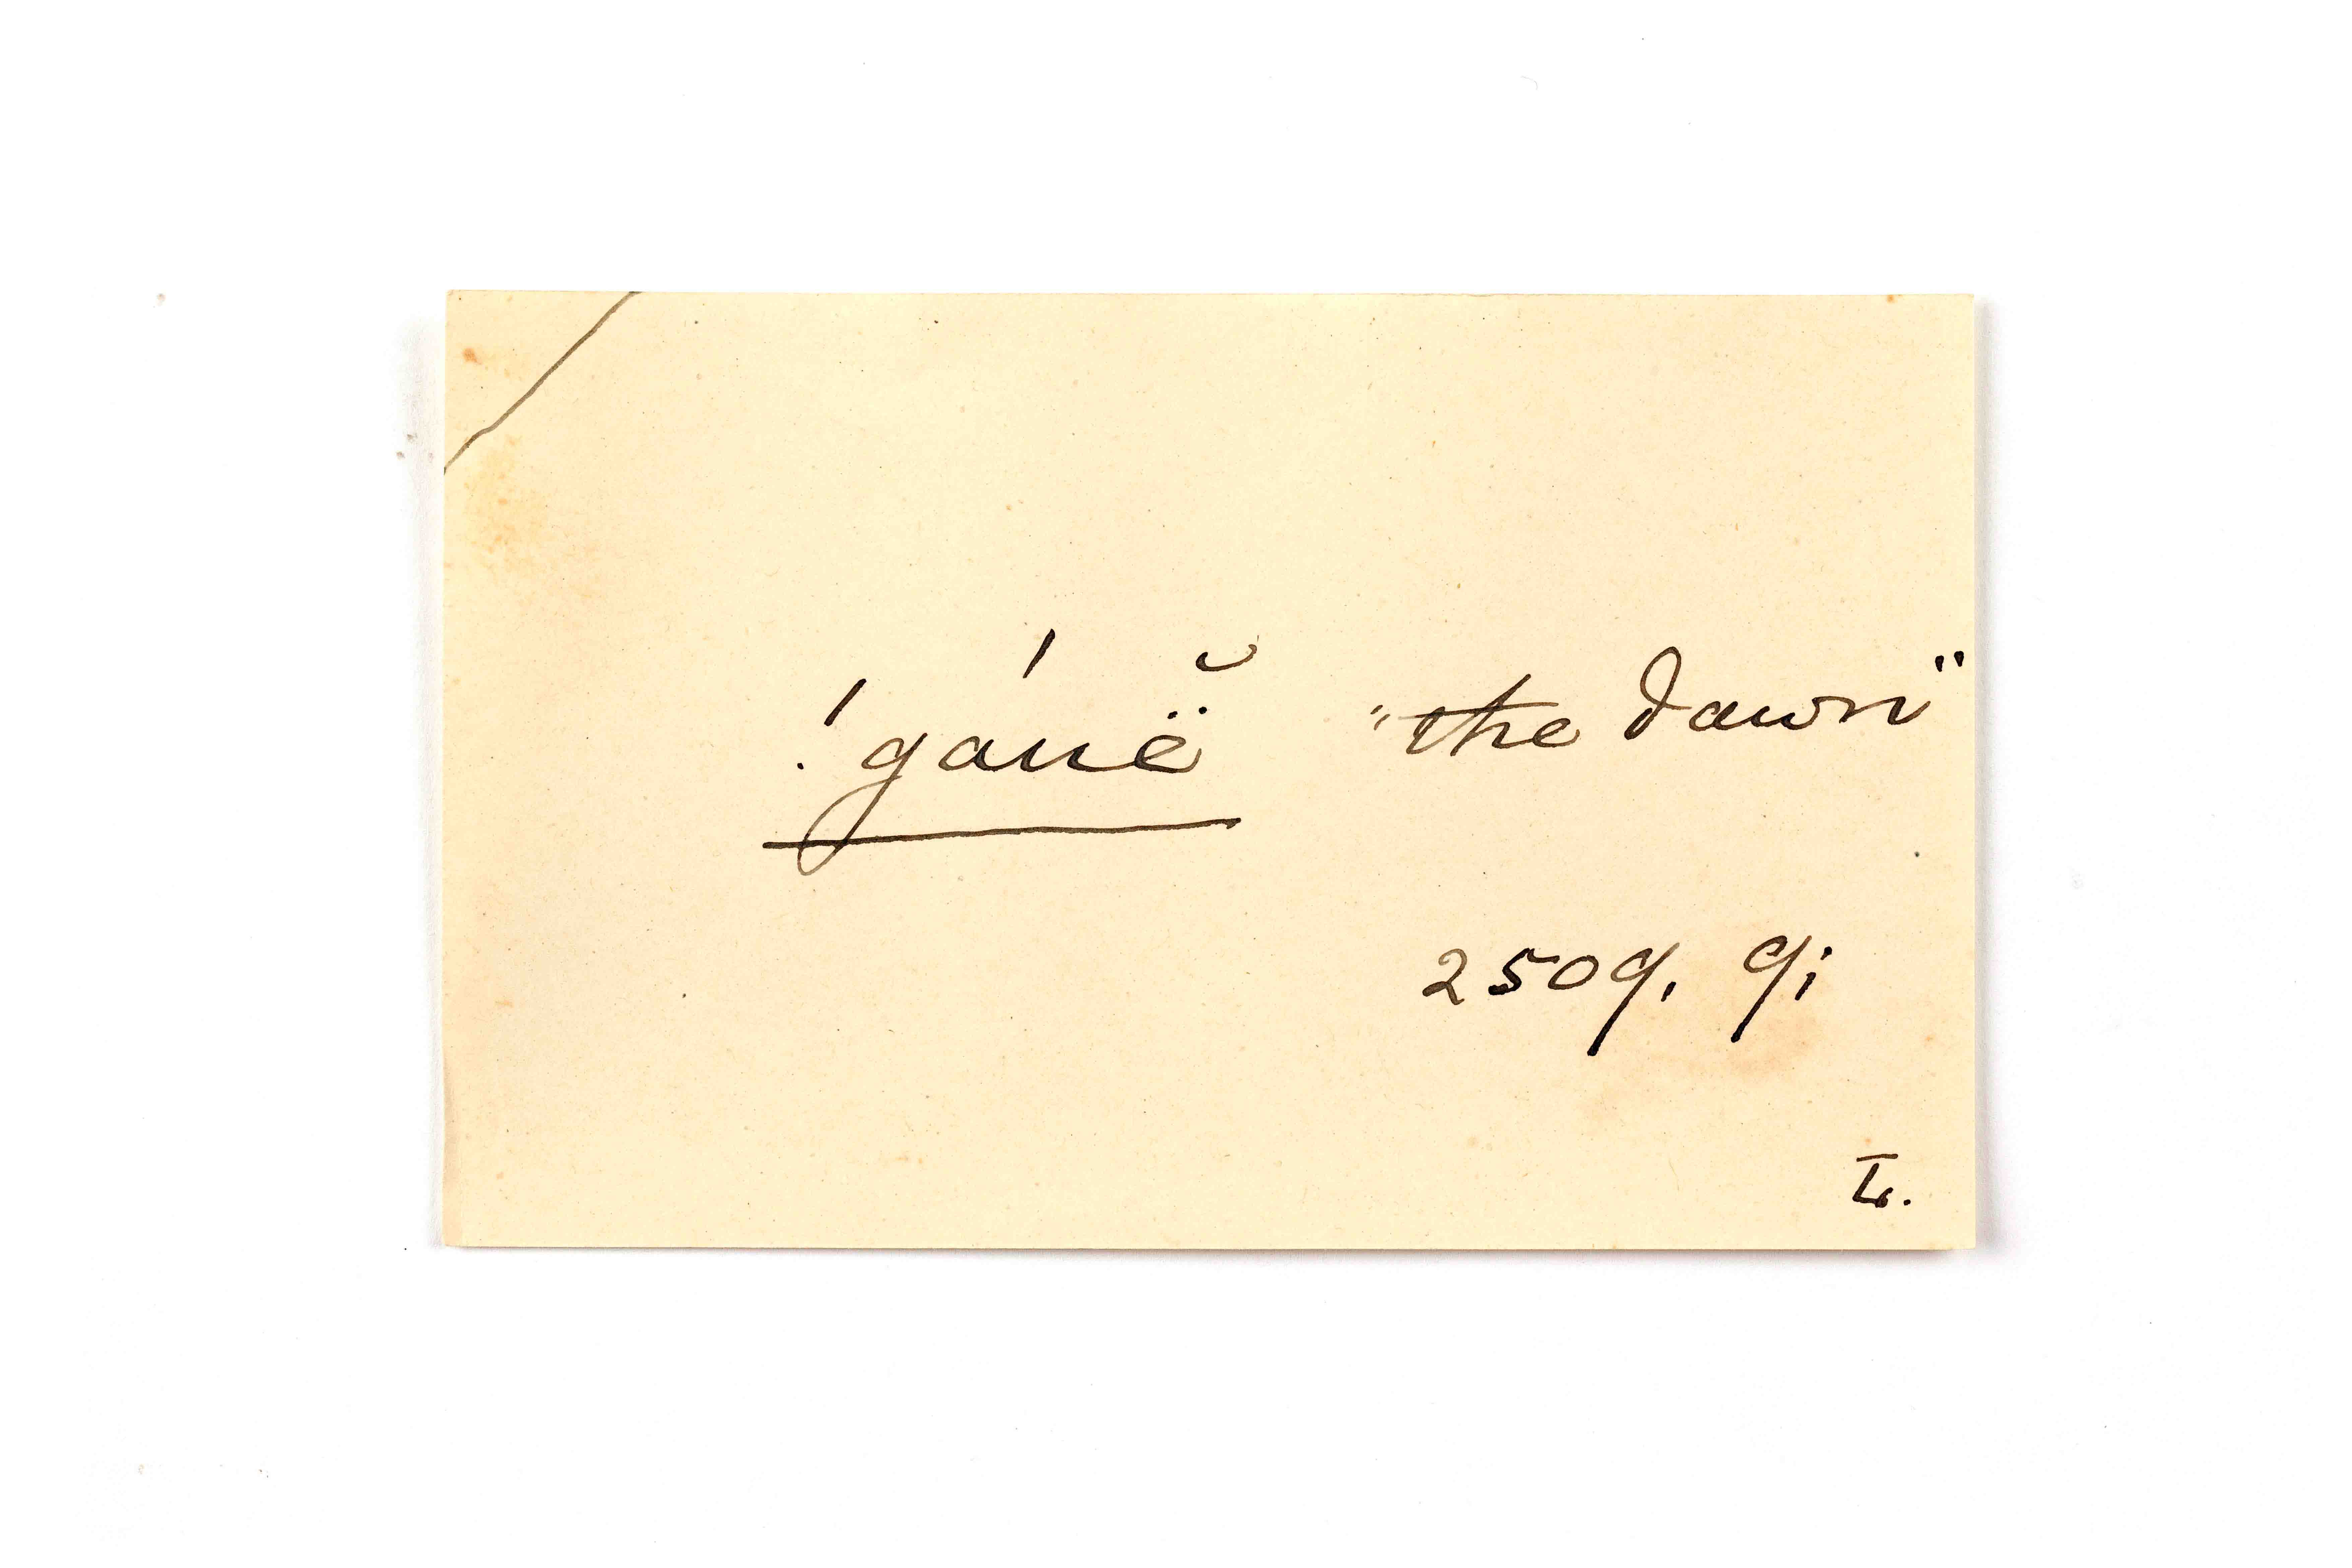 !gánë̆ "the dawn"
2509, 9;
L.